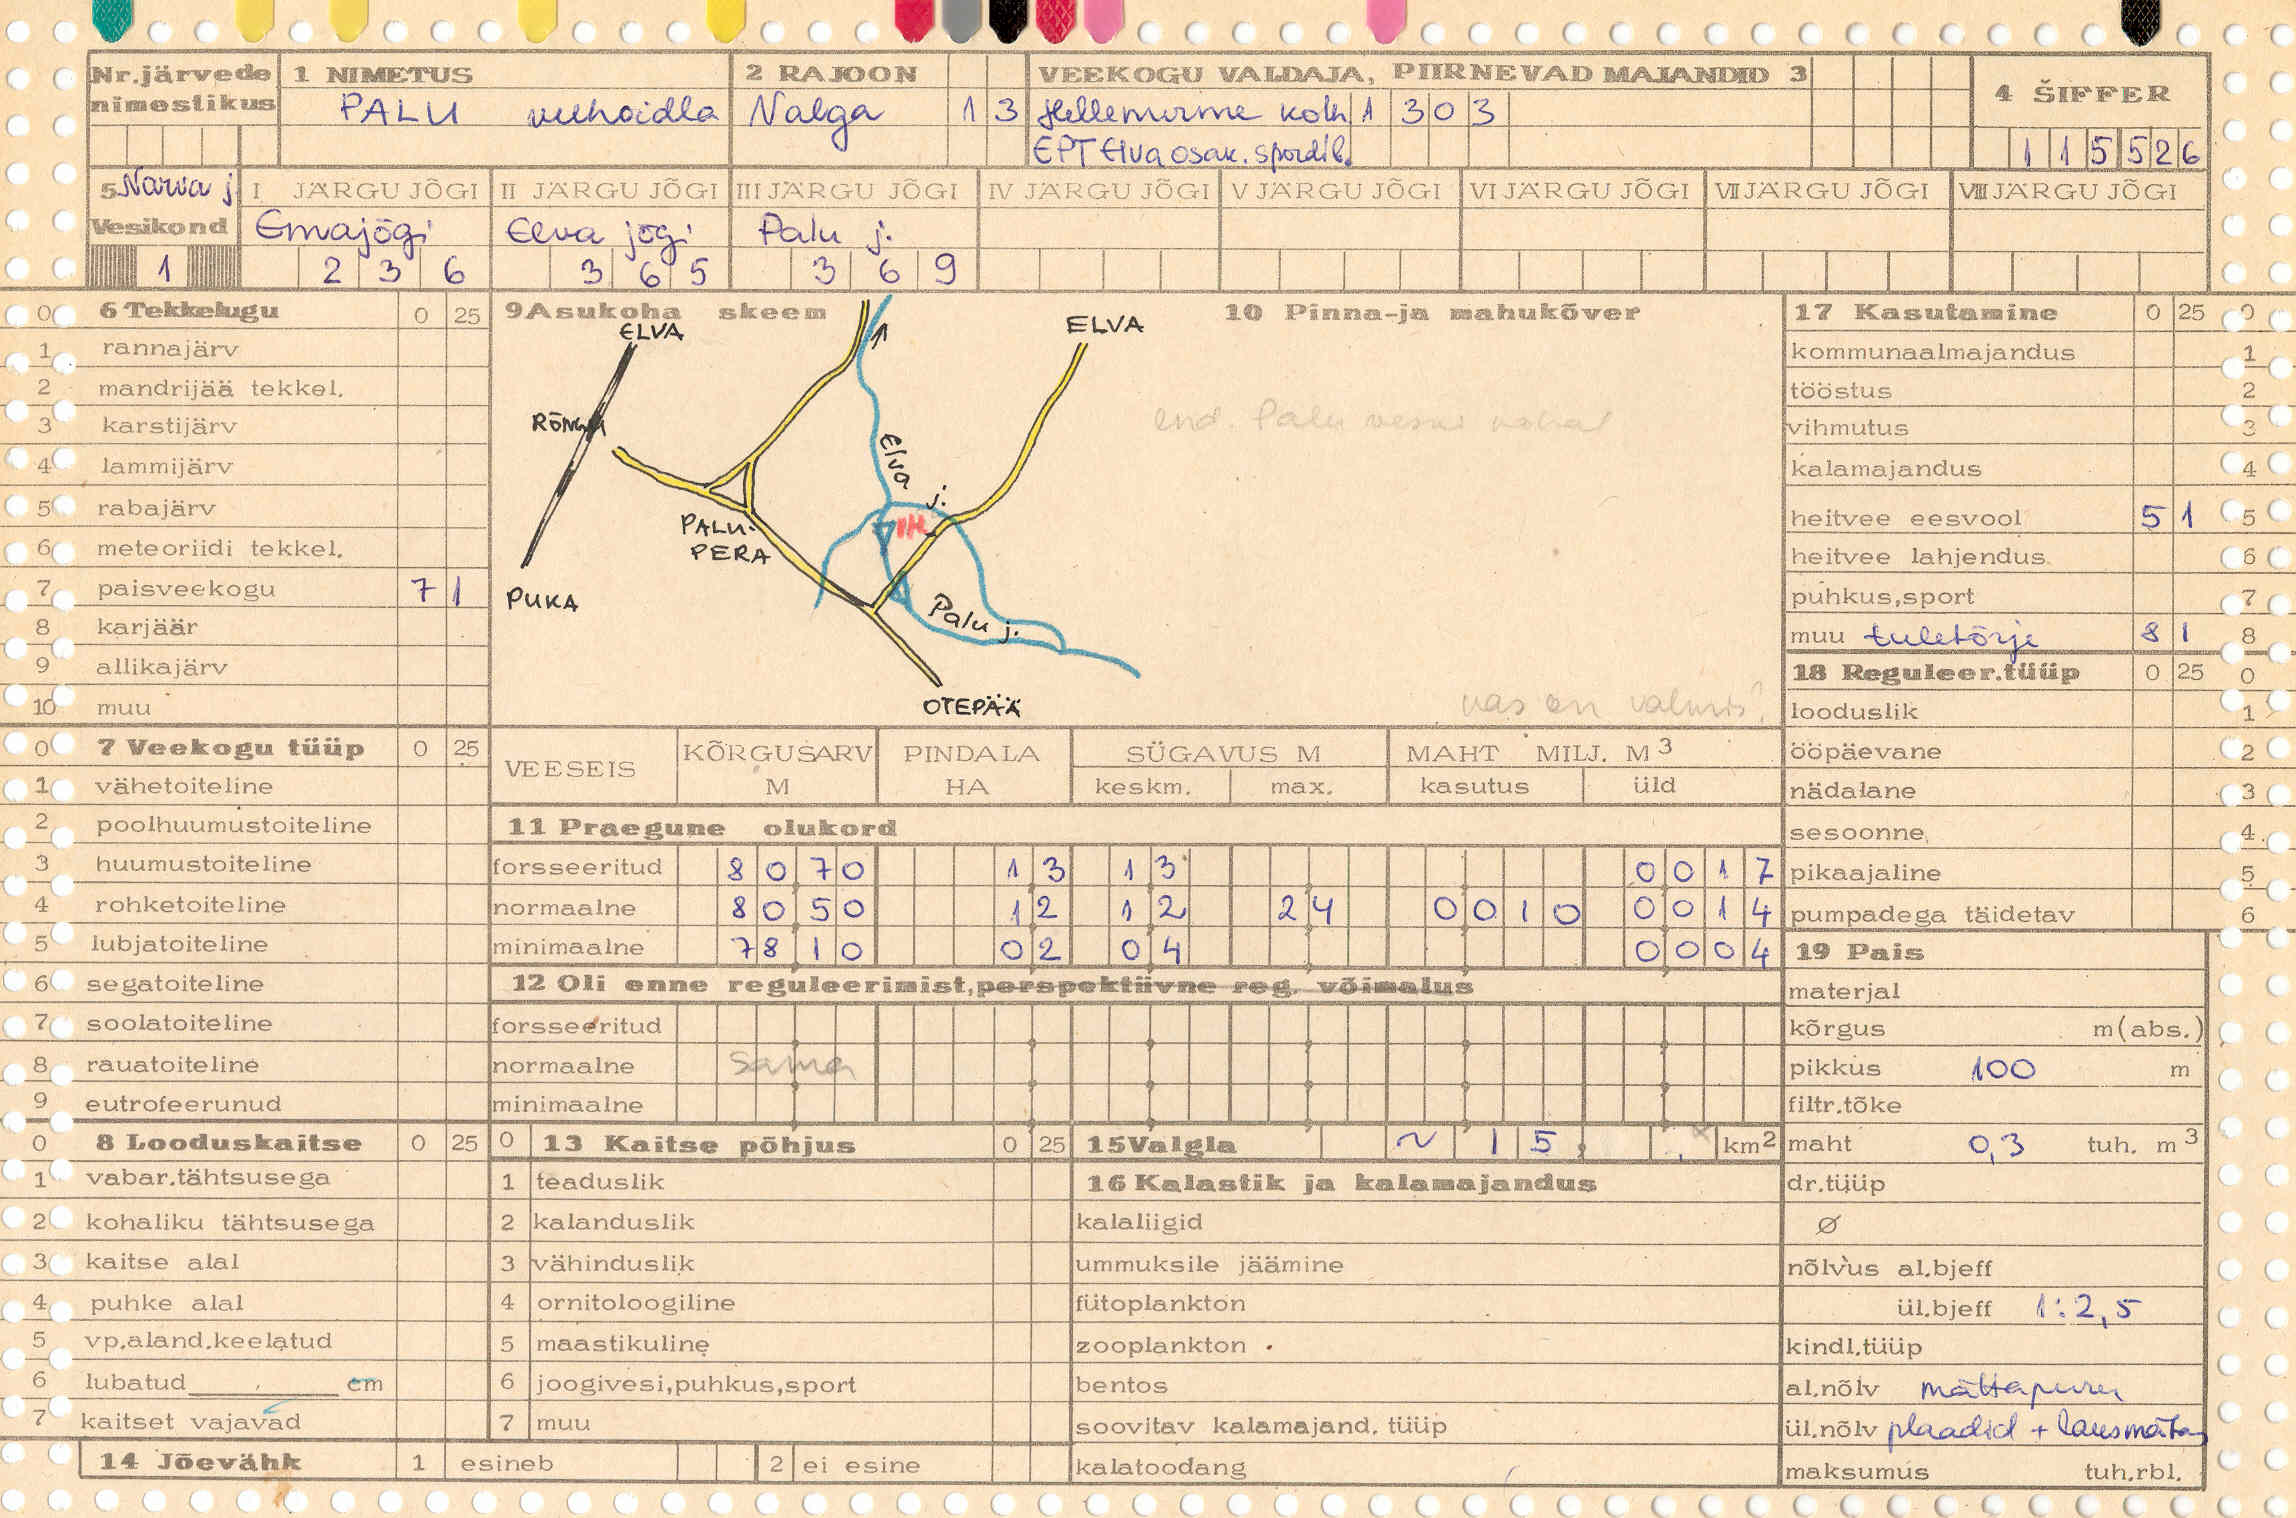 Nr.järvede nimestikus
1 NIMETUS
PALU veehoidla
2 RAJOON
Valga 1 3
VEEKOGU VALDAJA, PIIRNEVAD MAJANDID 3
Hellenurme kolh. 1 3 0 3
EPT Elva osak. spordib.
4 ŠIFFER
1 1 5 5 2 6
5 Narva j.
Vesikond
1
I JÄRGU JÕGI
Emajõgi
2 3 6
II JÄRGU JÕGI
Elva jõgi
3 6 5
III JÄRGU JÕGI
Palu j.
3 6 9
IV JÄRGU JÕGI
V JÄRGU JÕGI
VI JÄRGU JÕGI
VII JÄRGU JÕGI
VIII JÄRGU JÕGI
0 6 Tekkelugu 0 25
1 rannajärv
2 mandrijää tekkel.
3 karstijärv
4 lammijärv
5 rabajärv
6 meteoriidi tekkel.
7 paisveekogu 7 1
8 karjäär
9 allikajärv
10 muu
0 7 Veekogu tüüp 0 25
1 vähetoiteline
2 poolhuumustoiteline
3 huumustoiteline
4 rohketoiteline
5 lubjatoiteline
6 segatoiteline
7 soolatoiteline
8 rauatoiteline
9 eutrofeerunud
0 8 Looduskaitse 0 25
1 vabar.tähtsusega
2 kohaliku tähtsusega
3 kaitse alal
4 puhke alal
5 vp.aland.keelatud
6 lubatud cm
7 kaitset vajavad
14 Jõevähk 1 esineb 2 ei esine
9 Asukoha skeem
ELVA
RÕNGU
PUKA
PALU-
PERA
Elva j.
ELVA
Palu j.
OTEPÄÄ
10 Pinna-ja mahukõver
end. Palu veski kohal
kas on valmis?
VEESEIS
KÕRGUSARV M
PINDALA HA
SÜGAVUS M
keskm. max.
MAHT MILJ. M3
kasutus üld
11 Praegune olukord
forsseeritud 8 0 7 0 1 3 1 3 0 0 1 7
normaalne 8 0 5 0 1 2 1 2 2 4 0 0 1 0 0 0 1 4
minimaalne 7 8 1 0 0 2 0 4 0 0 0 4
12 Oli enne reguleerimist,perspektiivne reg. võimalus
forsseeritud
normaalne sama
minimaalne
0 13 Kaitse põhjus 0 25
1 teaduslik
2 kalanduslik
3 vähinduslik
4 ornitoloogiline
5 maastikuline
6 joogivesi,puhkus,sport
7 muu
15 Valgla ~ 1 5 , km2
16 Kalastik ja kalamajandus
kalaliigid
ummuksile jäämine
fütoplankton
zooplankton
bentos
soovitav kalamajand. tüüp
kalatoodang
17 Kasutamine 0 25 0
kommunaalmajandus 1
tööstus 2
vihmutus 3
kalamajandus 4
heitvee eesvool 5 1 5
heitvee lahjendus 6
puhkus,sport 7
muu tuletõrje 8 1 8
18 Reguleer.tüüp 0 25 0
looduslik 1
ööpäevane 2
nädalane 3
sesoonne 4
pikaajaline 5
pumpadega täidetav 6
19 Pais
materjal
kõrgus m(abs.)
pikkus 100 m
filtr.tõke
maht 0,3 tuh. m3
dr.tüüp
ø
nõlvus al.bjeff
ül.bjeff 1:2,5
kindl.tüüp
al.nõlv
ül.nõlv plaadid + lausmätas
maksumus tuh.rbl.